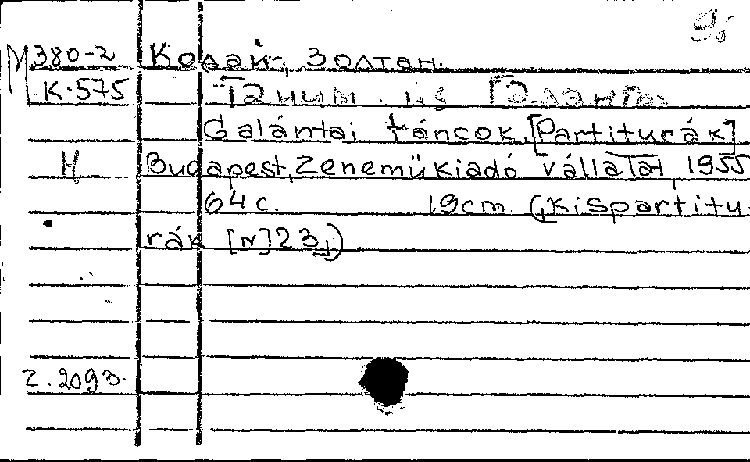 9
М 380-2 Кодай, Золтан.
К-575 Танцы из Галанты
Galántai táncok. [Partiturák]
Н Budapest, Zeneműkiadó vállalat, 1955
64 с. 19cm. („Kispartitu-
rák [N] 23„)
2.2093.